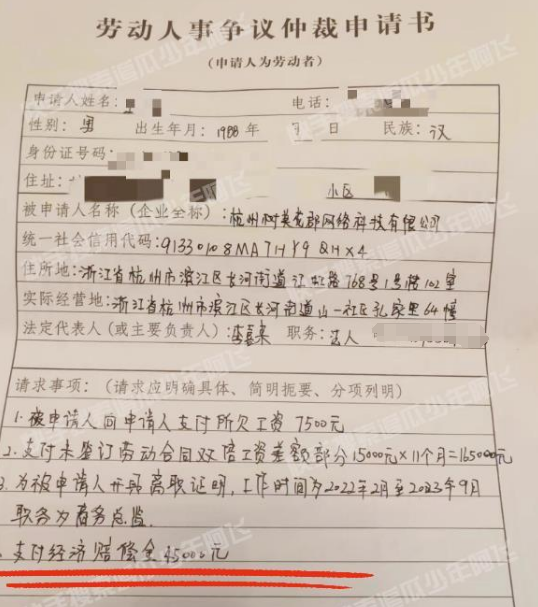 劳动人事争议仲裁申请书
(申请人为劳动者)
申请人姓名: 电话:
性别: 男 出生年月: 1988 年 日 民族: 汉
身份证号码:
住址: 小区
被申请人名称 (企业全称): 杭州树英龙郎网络科技有限公司
统一社会信用代码: 91330108MA7HY9QHX4
住所地: 浙江省杭州市滨江区长河街道江虹路768号1号楼102室
实际经营地: 浙江省杭州市滨江区长河街道山一社区孔家里64幢
法定代表人 (或主要负责人): 职务: 法人
请求事项: (请求应明确具体、简明扼要、分项列明)
1. 被申请人向申请人支付所欠工资 7500元
2. 支付未签订劳动合同双倍工资差额部分15000元×11个月=165000元
3. 为被申请人开具离职证明,工作时间为2022年2月至2023年9月
职务为商务总监.
支付经济赔偿金45000元